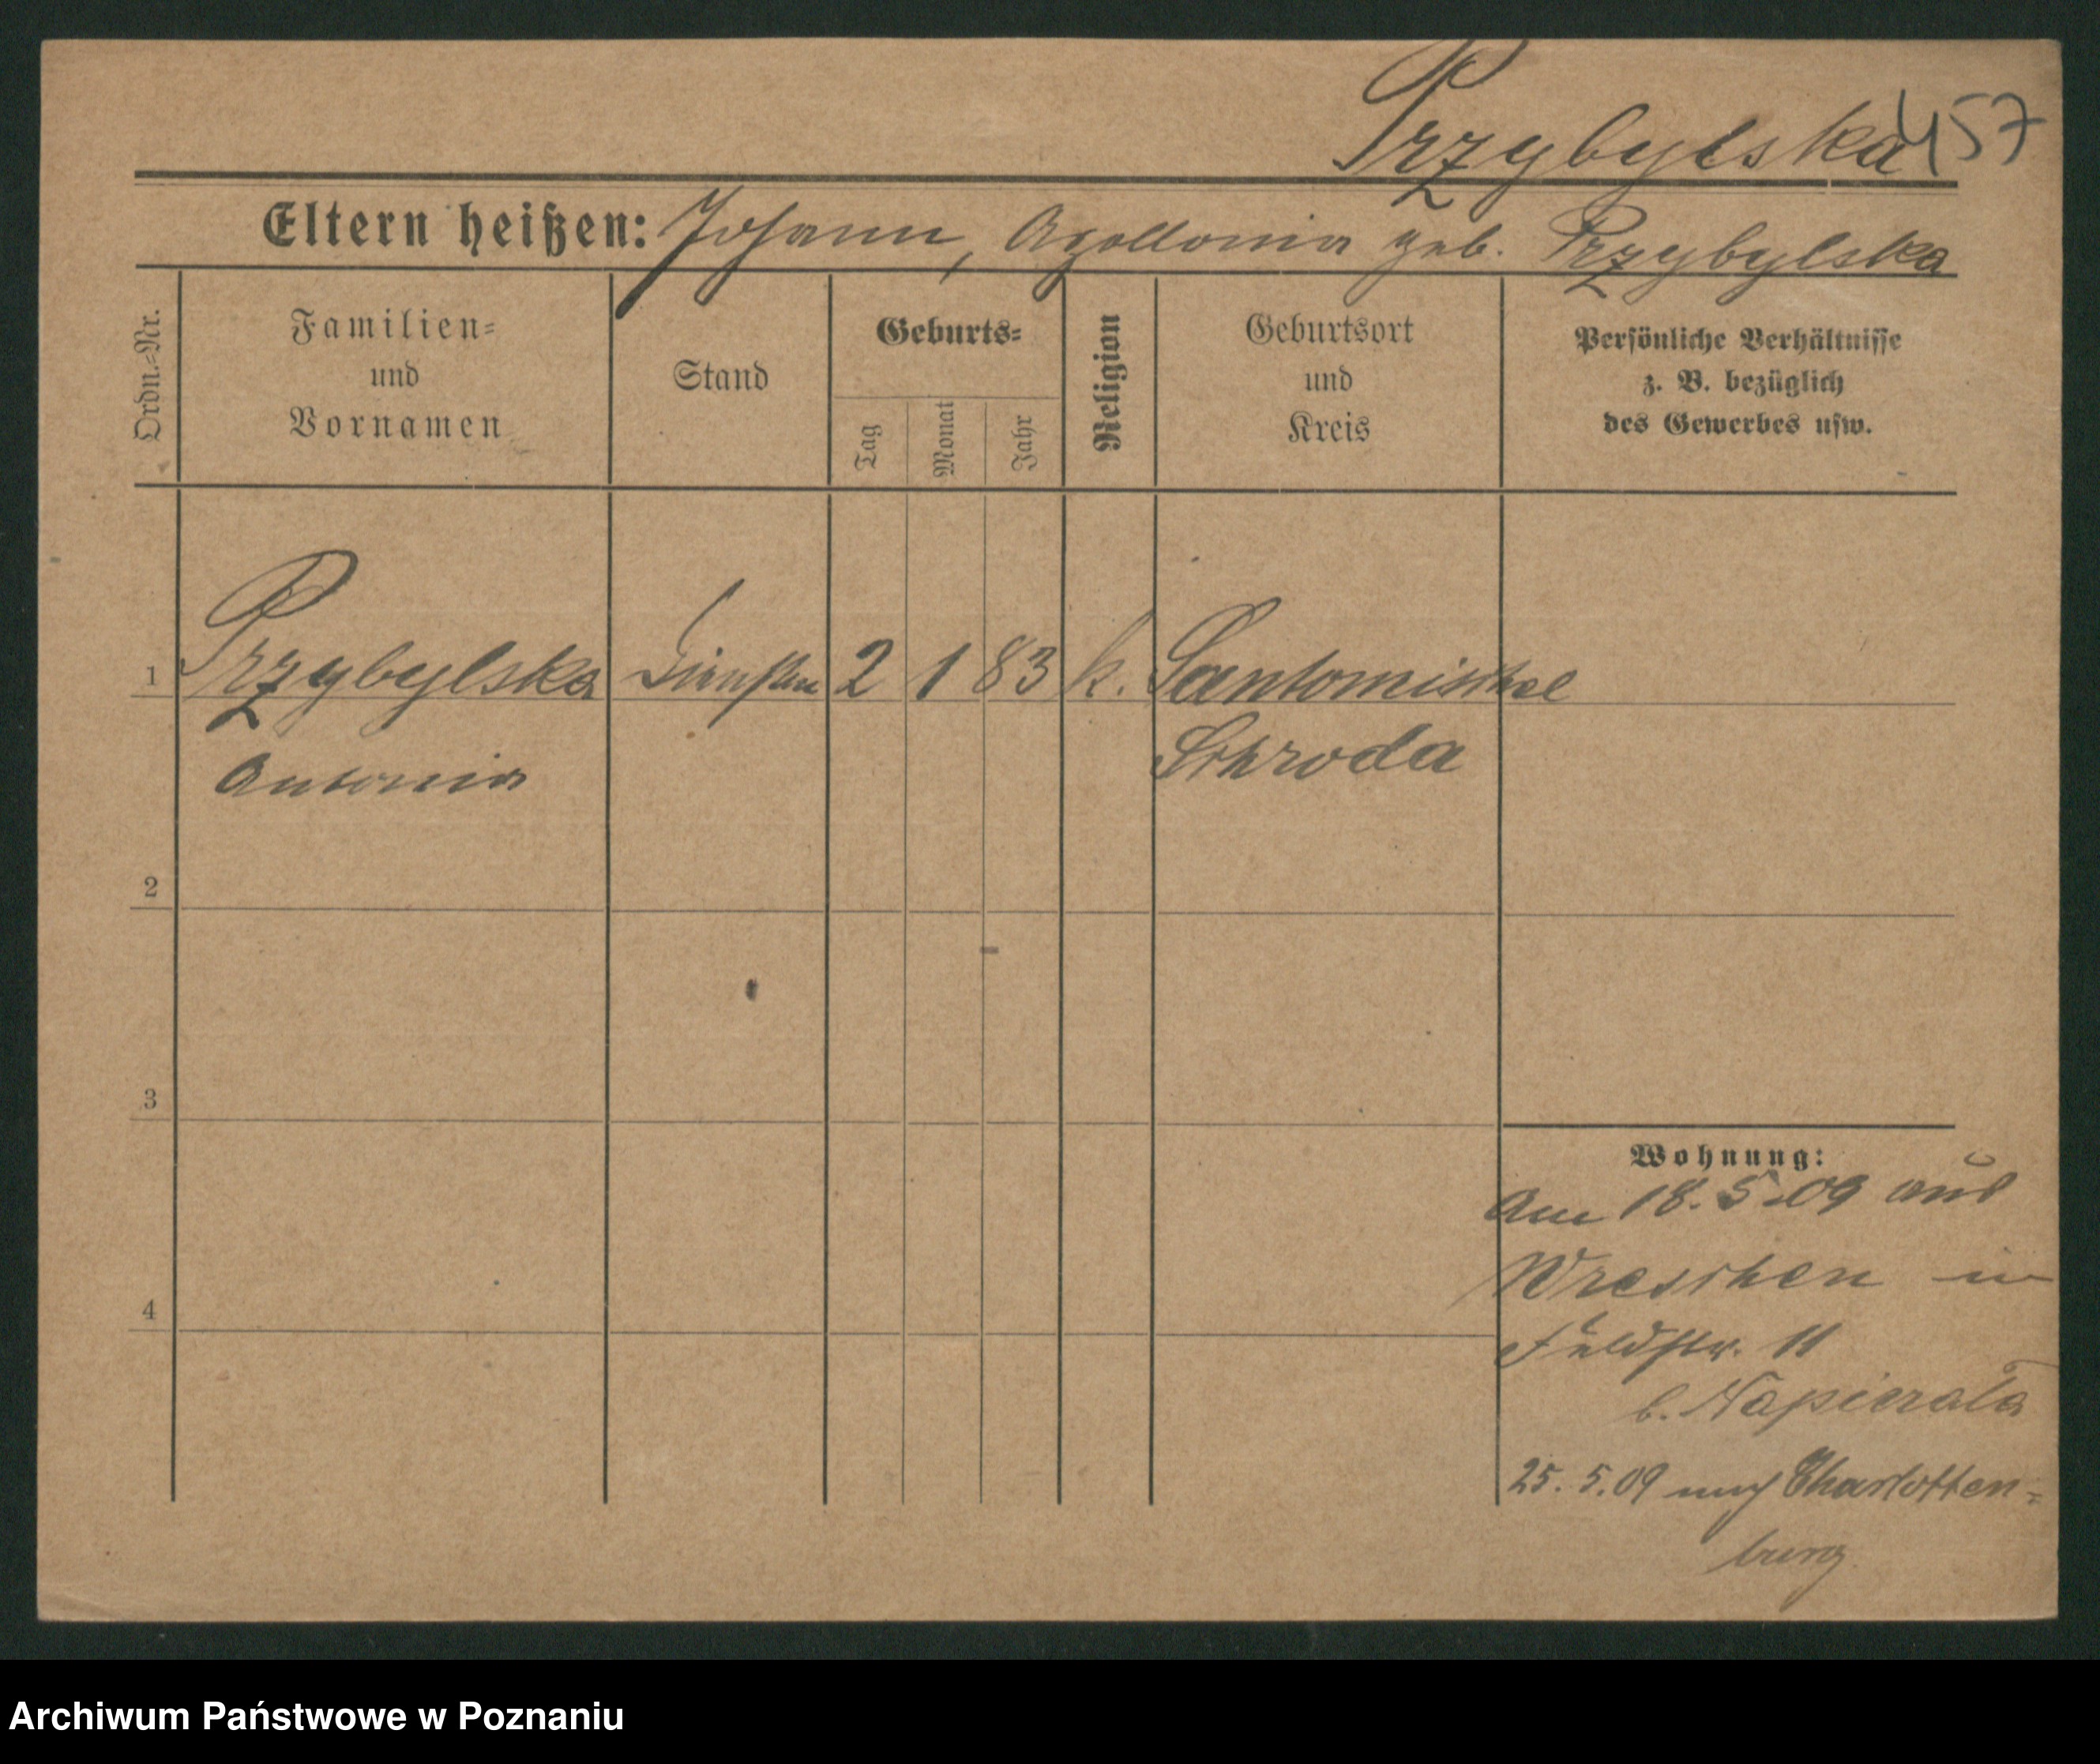 Przybylska 457
Eltern heißen: Johann, Apollonia geb. Przybylska
Ordn.=Nr.
Familien=
und
Vornamen
Stand
Geburts=
Tag
Monat
Jahr
Religion
Geburtsort
und
Kreis
Persönliche Verhältnisse
z. B. bezüglich
des Gewerbes usw.
1 Przybylska 2 1 83 k. Santomischel
Antonia Schroda
2
3
4
Wohnung:
Am 18.5.09 aus
Wreschen in
Feldstr. 11
b. Napierala
25.5.09 nach Charlotten=
burg.
Archiwum Państwowe w Poznaniu